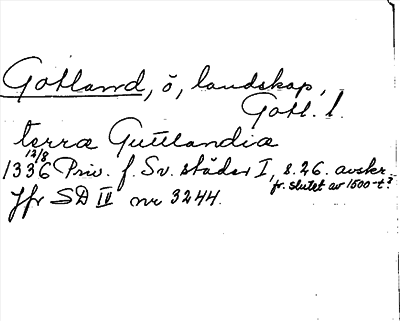 Gotland, ö, landskap,
Gotl. l.
terra Guttlandia
12/8
1336 Priv. f. Sv. städer I, s. 26. avskr.
fr. slutet av 1500-t?
Jfr SD IV nr 3244.